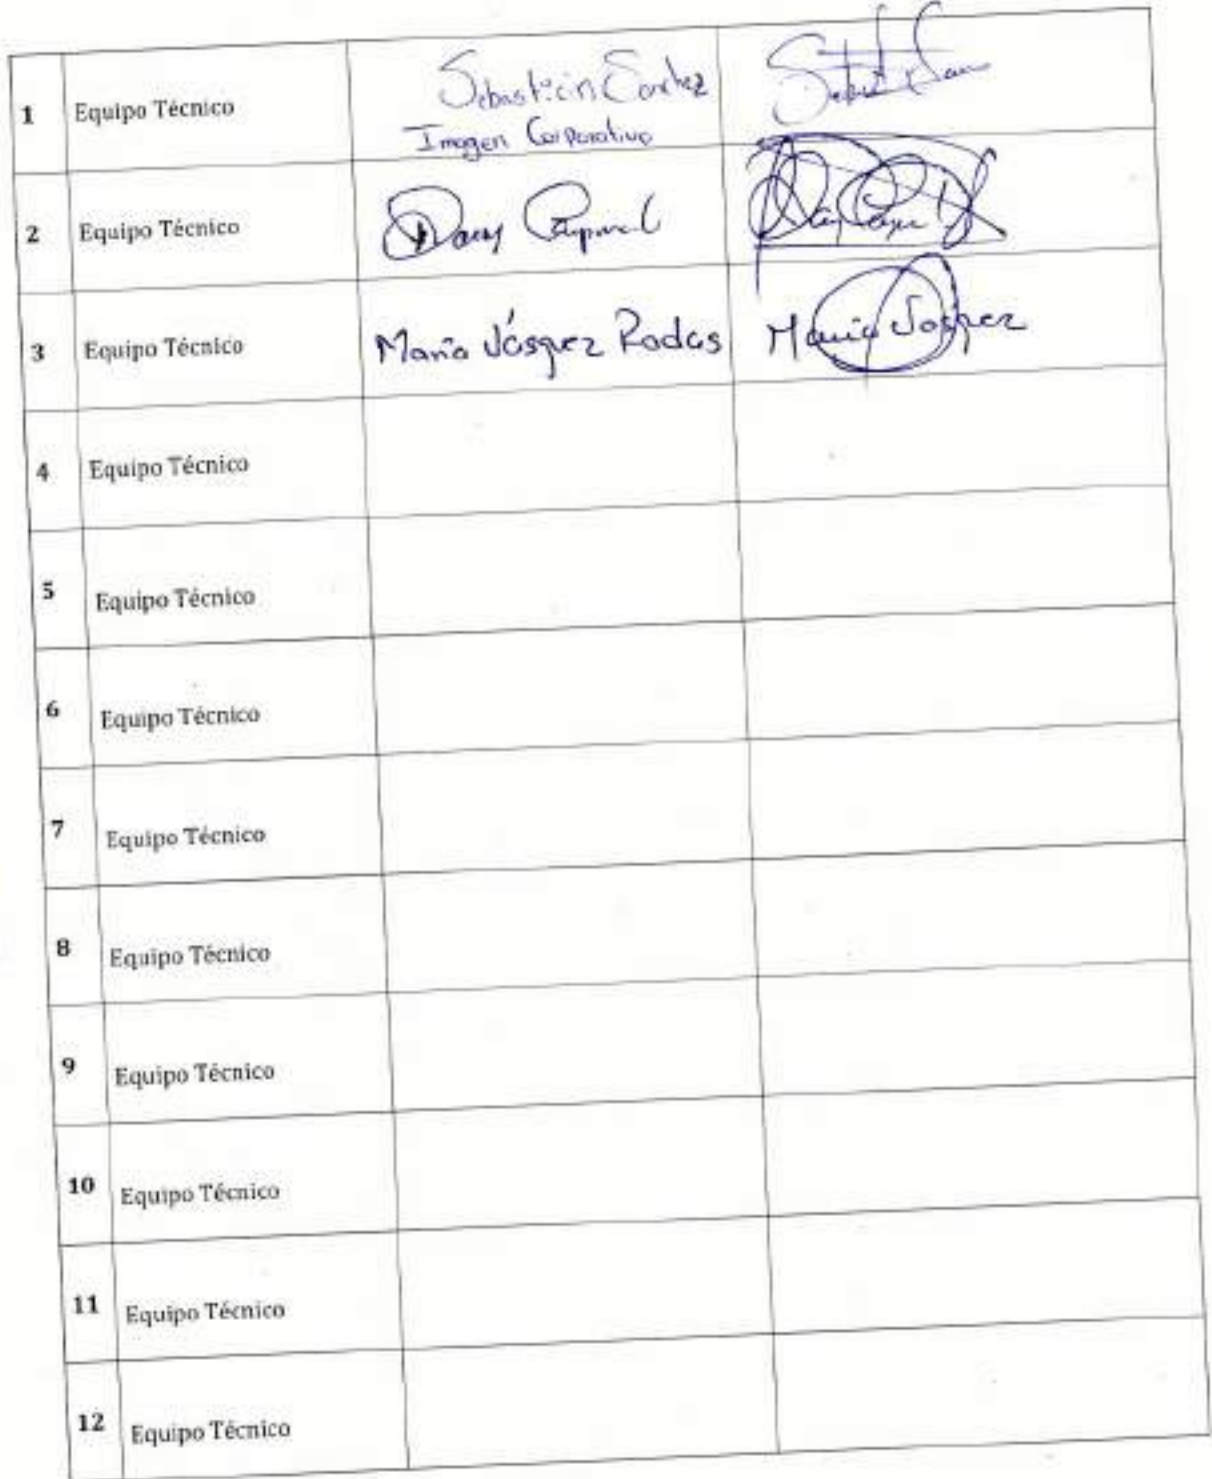 1 Equipo Técnico Sebastián
Imagen Corporativa
2 Equipo Técnico
3 Equipo Técnico María Vásquez Rodas María Vásquez
4 Equipo Técnico
5 Equipo Técnico
6 Equipo Técnico
7 Equipo Técnico
8 Equipo Técnico
9 Equipo Técnico
10 Equipo Técnico
11 Equipo Técnico
12 Equipo Técnico